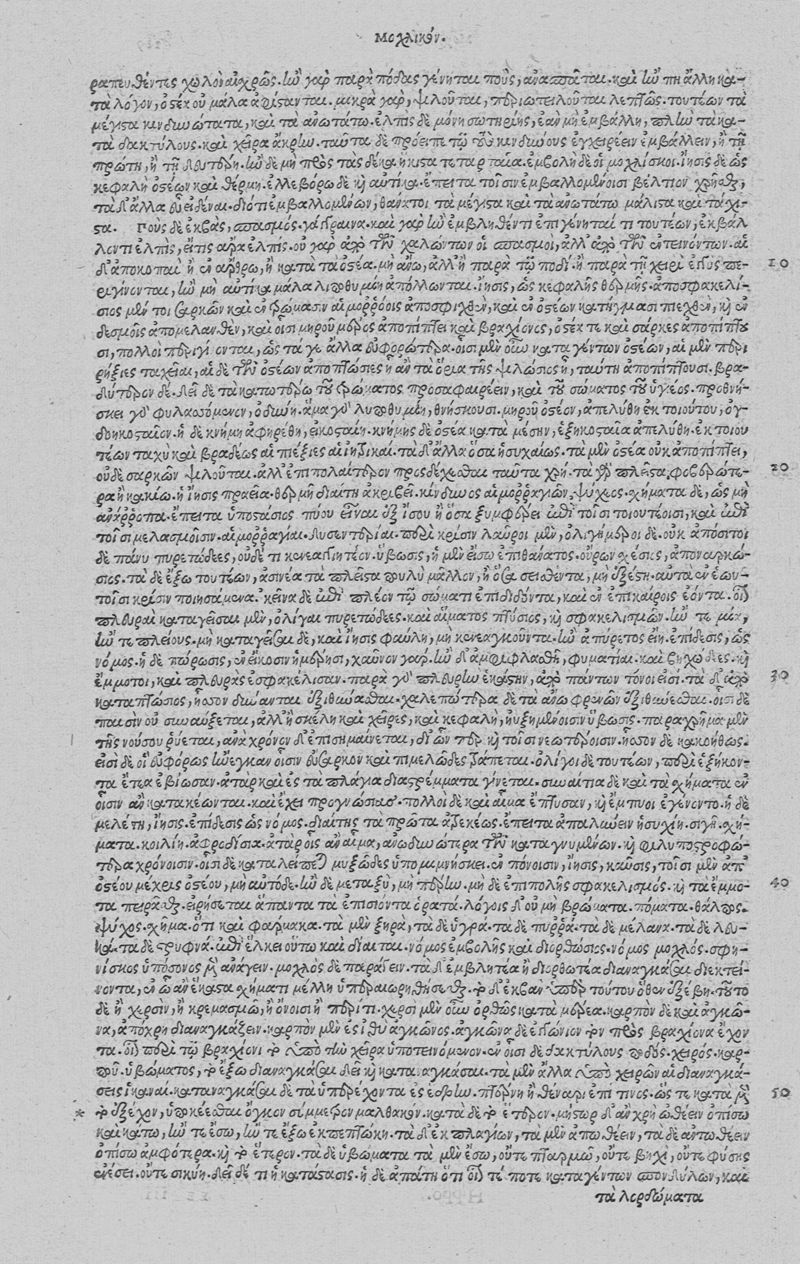 Μοχλικόν.
ραπευθέντες χωλοὶ αἰσχρῶς. ἢν γὰρ παρὰ πόδας γένηται ποὺς, ἀνασπᾶται. καὶ ἤν πη ἄλλη κα-
τὰ λόγον, ὀστέα οὐ μάλα ἀφίσανται. μικρὰ γὰρ, ψιλοῦται, περιωτειλοῦται λεπτῶς. τουτέων τὰ
μέγιστα κινδυνωδέστατα, καὶ τὰ ἀνωτάτω. ἐλπὶς δὲ μούνη σωτηρίης, ἐὰν μὴ ἐμβάλλῃ, πλὴν τὰ κα-
τὰ δακτύλους. καὶ χεῖρα ἄκρην. ταῦτα δὲ προειπέτω τοὺς κινδύνους. ἐγχειρέειν ἐμβάλλειν, ἢ τῇ
πρώτῃ, ἢ τῇ δευτέρῃ. ἢν δὲ μὴ πρὸς τὰς δέκα. ἥκιστα τεταρταῖα. ἐμβολὴ δὲ οἱ μοχλίσκοι. ἴησις δὲ ὡς
κεφαλῆς ὀστέων καὶ θέρμη. ἐλλεβόρῳ δὲ καὶ αὐτίκα. ἔπειτα τοῖσιν ἐμβαλλομένοισι βέλτιον χρῆσθαι,
τὰ δ' ἄλλα εὖ εἰδέναι. διότι ἐμβαλλομένων, θάνατοι τὰ μέγιστα καὶ τὰ ἀνωτάτω μάλιστα καὶ τάχι-
στα. Ποὺς δὲ ἐκβὰς, σπασμὸς, γάγγραινα. καὶ γὰρ ἢν ἐμβληθέντι ἐπιγένηταί τι τουτέων, ἐκβάλ
λοντι ἐλπὶς, εἴ τις ἄρα ἐλπίς. οὐ γὰρ ἀπὸ τῶν χαλώντων οἱ σπασμοὶ, ἀλλ' ἀπὸ τῶν ἐντεινόντων. αἱ
δ' ἀποκοπαὶ ἢ ἐν ἄρθρῳ, ἢ κατὰ τὰ ὀστέα. μὴ ἄνω, ἀλλ' ἢ παρὰ τῷ ποδὶ ἢ παρὰ τῇ χειρὶ ἐγγὺς πε-
ριγίνονται, ἢν μὴ αὐτίκα μάλα λιποθυμίῃ ἀπόλλωνται. ἴησις, ὡς κεφαλῆς θέρμης. ἀποσφακελί-
σιος μέν τοι σαρκῶν καὶ ἐν τρώμασιν αἱμορρόοις ἀποσφιγχθὲν, καὶ ἐν ὀστέων κατήγμασι πιεχθὲν, καὶ ἐν
δεσμοῖς ἀπομελανθὲν, καὶ οἷσι μηροῦ μέρος ἀποπίπτει καὶ βραχίονος, ὀστέα τε καὶ σάρκες ἀποπίπτου
σι, πολλοὶ περιγίνονται, ὡς τά γε ἄλλα εὐφορώτερα. οἷσι μὲν οὖν καταγέντων ὀστέων, αἱ μὲν περι
ρήξιες ταχεῖαι, αἱ δὲ τῶν ὀστέων ἀποπτώσιες ᾗ ἂν τὰ ὅρια τῆς ψιλώσιος ᾖ, ταύτῃ ἀποπίπτουσι. βρα-
δύτερον δέ. δεῖ δὲ τὰ κατωτέρω τοῦ τρώματος προσαφαιρέειν, καὶ τοῦ σώματος τοῦ ὑγιέος. προθνή-
σκει γὰρ φυλασσόμενον, ὀδύνη. ἅμα γὰρ λιποθυμίῃ, θνήσκουσι. μηροῦ ὀστέον, ἀπελύθη ἐκ τοιούτου, ὀγ-
δοηκοσταῖον. ἡ δὲ κνήμη ἀφῃρέθη, εἰκοσταίη. κνήμης δὲ ὀστέα κατὰ μέσην, ἑξηκοσταῖα ἀπελύθη. ἐκ τοιού
τέων ταχὺ καὶ βραδέως αἱ πιέξιες αἱ ἰητρικαί. τὰ δ' ἄλλα ὅσα ἡσυχαίως. τὰ μὲν ὀστέα οὐκ ἀποπίπτει,
οὐδὲ σαρκῶν ψιλοῦται. ἀλλ' ἐπιπολαιότερον προσδέχεσθαι ταῦτα χρή. τὰ γὰρ πλεῖστα, φοβερώτε-
ρα ἢ κακίω. ἡ ἴησις πραεῖα. θερμῇ διαίτῃ ἀκριβεῖ. κίνδυνος αἱμορραγιῶν, ψύχεος. σχήματα δὲ, ὡς μὴ
ἀνάρροπα. ἔπειτα ὑποστάσιος πύου εἵνεκα ἐξ ἴσου ἢ ὅσα ξυμφέρει ἐπὶ τοῖσι τοιουτέοισι, καὶ ἐπὶ
τοῖσι μελασμοῖσιν. αἱμορραγίαι. δυσεντερίαι. περὶ κρίσιν λαῦροι μὲν, ὀλιγήμεροι δέ. οὐκ ἀπόσιτοι
δὲ πάνυ πυρετώδεες, οὐδέ τι κενεαγγητέον. ὕβωσις, ἡ μὲν εἴσω ἐπιθάνατος. οὔρων σχέσις, ἀποναρκώ-
σιος. τὰ δὲ ἔξω τουτέων, ἀσινέα τὰ πλεῖστα πουλὺ μᾶλλον, ἢ ὅσα σεισθέντα, μὴ ἐξέστη. αὐτὰ ἐν ἑωυ-
τοῖσι κρίσιν ποιησάμενα. κεῖνα δὲ ἐπὶ πλέον τῷ σώματι ἐπιδιδόντα, καὶ ἐν ἐπικαίροις ἐόντα. οἷον
πλευραὶ καταγεῖσαι μὲν, ὀλίγαι πυρετώδεες. καὶ αἵματος πτύσιος, καὶ σφακελισμῶν. ἤν τε μία,
ἤν τε πλείους. μὴ καταγεῖσαι δὲ, καὶ ἴησις φαύλη, μὴ κενεαγγοῦντα. ἢν ἀπύρετος ἔῃ. ἐπίδεσις, ὡς
νόμος. ἡ δὲ πώρωσις, ἐν εἴκοσιν ἡμέρῃσι, χαῦνον γάρ. ἢν δ' ἀμφιφλασθῇ, φυματίαι. καὶ βηχώδεες. καὶ
ἔμμοτοι, καὶ πλευρὰς ἐσφακέλισαν. παρὰ γὰρ πλευρὴν ἑκάστην, ἀπὸ πάντων τόνοι εἰσί. τὰ δ' ἀπὸ
καταπτώσιος, ἧσσον δύνανται ἐξιθύνεσθαι. χαλεπώτερα δὲ τὰ ἄνω φρενῶν ἐξιθύνεσθαι. οἷσι δὲ
παισὶν οὐ συναύξεται, ἀλλ' ἢ σκέλη καὶ χεῖρες, καὶ κεφαλή. ηὐξημένοισιν ὕβωσις. παραχρῆμα μὲν
τῆς νούσου ῥύεται, ἀνὰ χρόνον δ' ἐπισημαίνεται, δι' ὧν περ καὶ τοῖσι νεωτέροισιν. ἧσσον δὲ κακοήθως.
εἰσὶ δὲ οἳ εὐφόρως ἤνεγκαν οἷσιν εὔσαρκον καὶ πιμελῶδες τράπεται. ὀλίγοι δὲ τουτέων, περὶ ἑξήκον-
τα ἔτεα ἐβίωσαν. ἀτὰρ καὶ ἐς τὰ πλάγια διαστρέμματα γίνεται. συναίτια δὲ καὶ τὰ σχήματα ἐν
οἷσιν ἂν κατακέωνται. καὶ ἔχει προγνώσιας. πολλοὶ δὲ καὶ αἷμα ἔπτυσαν, καὶ ἔμπυοι ἐγένοντο. ἡ δὲ
μελέτη, ἴησις. ἐπίδεσις ὡς νόμος. διαίτης τὰ πρῶτα ἀτρεκέως. ἔπειτα ἁπαλύνειν ἡσυχίῃ. σιγῇ. σχή-
ματα. κοιλίη. ἀφροδίσια. ἀτὰρ οἷς ἄναιμα, ἀνωδυνώτερα τῶν καταγνυμένων. καὶ φιλυποστροφώ-
τερα χρόνοισιν. οἷσι δὲ καταλείπεται μυξῶδες ὑπομιμνήσκει ἐν πόνοισιν, ἴησις, καῦσις, τοῖσι μὲν ἀπ'
ὀστέου μέχρις ὀστέου, μὴ αὐτὸ δέ. ἢν δὲ μεταξὺ, μὴ πέρην. μὴ δὲ ἐπιπολῆς σφακελισμός. καὶ τὰ ἔμμο-
τα πειρᾶσθαι. εἰρήσεται ἅπαντα τὰ ἐπισιόντα ὁρατά. λόγοις δ' οὒ μὴ βρώματα. πόματα. θάλπος.
ψύχος. σχῆμα. ὅτι καὶ φάρμακα. τὰ μὲν ξηρὰ, τὰ δὲ ὑγρά. τὰ δὲ πυρρά. τὰ δὲ μέλανα. τὰ δὲ λευ-
κά. τὰ δὲ στρυφνά. ἐπὶ ἕλκει οὕτω καὶ δίαιται. νόμος ἐμβολῆς καὶ διορθώσιος. νόμος μοχλός. σφη-
νίσκος ὑπὸ ὄνος μὲν ἀνάγειν. μοχλὸς δὲ παράγειν. τὰ δ' ἐμβλητέα ἢ διορθωτέα διαναγκάσαι διεκτεί-
νοντα, ἐν ᾧ ἂν ἕκαστα σχήματι μέλλῃ ὑπεραιωρηθήσεσθαι. τὸ δ' ἐκβὰν ὑπὲρ τούτου ὅθεν ἐξέβη. τοῦτο
δὲ ἢ χερσὶν, ἢ κρεμασμῷ, ἢ ὄνοισι ἢ περί τι. χερσὶ μὲν οὖν ὀρθῶς κατὰ μέρεα. καρπὸν δὲ καὶ ἀγκῶ-
να, ἀπόχρη διαναγκάζειν. καρπὸν μὲν ἐς ἰθὺ ἀγκῶνος. ἀγκῶνα δὲ ἐγγώνιον τὸν πρὸς βραχίονα ἔχον
τα. οἷον περὶ τῷ βραχίονι τὸ ὑπὸ τὴν χεῖρα ὑποτεινόμενον. ἐν οἷσι δὲ δακτύλους ποδὸς, χειρὸς, καρ-
ποῦ. ὑβώματος, τὸ ἔξω διαναγκάσαι δεῖ καὶ καταναγκάσαι. τὰ μὲν ἄλλα ὑπὸ χειρῶν αἱ διαναγκά-
σεις ἱκαναί. καταναγκάσαι δὲ τὰ ὑπερέχοντα ἐς ἕδρην. πτέρνῃ ἢ θέναρι ἐπί τινος. ὥς τε κατὰ μὲν
τὸ ἐξέχον, ὑποκέεσθαι ὄγκον σύμμετρον μαλθακόν. κατὰ δὲ τὸ ἕτερον. μήπερ δ' ἂν χρὴ ὠθέειν ὀπίσω
καὶ κάτω, ἤν τε ἔσω, ἤν τε ἔξω ἐκπεπτώκῃ. τὰ δ' ἐκ πλαγίων, τὰ μὲν ἀπωθέειν, τὰ δὲ ἀντωθέειν
ὀπίσω ἀμφότερα. καὶ τὸ ἕτερον. τὰ δὲ ὑβώματα τὰ μὲν ἔσω, οὔτε πταρμῷ, οὔτε βηχὶ, οὔτε φύσης
ἐνέσει. οὔτε σικύῃ. δεῖ δέ τι ἡ κατάτασις. ἡ δὲ ἀπάτη ὅτι οἷόν τέ ποτε καταγέντων σπονδύλων, καὶ
τὰ λορδώματα
10
20
30
40
50